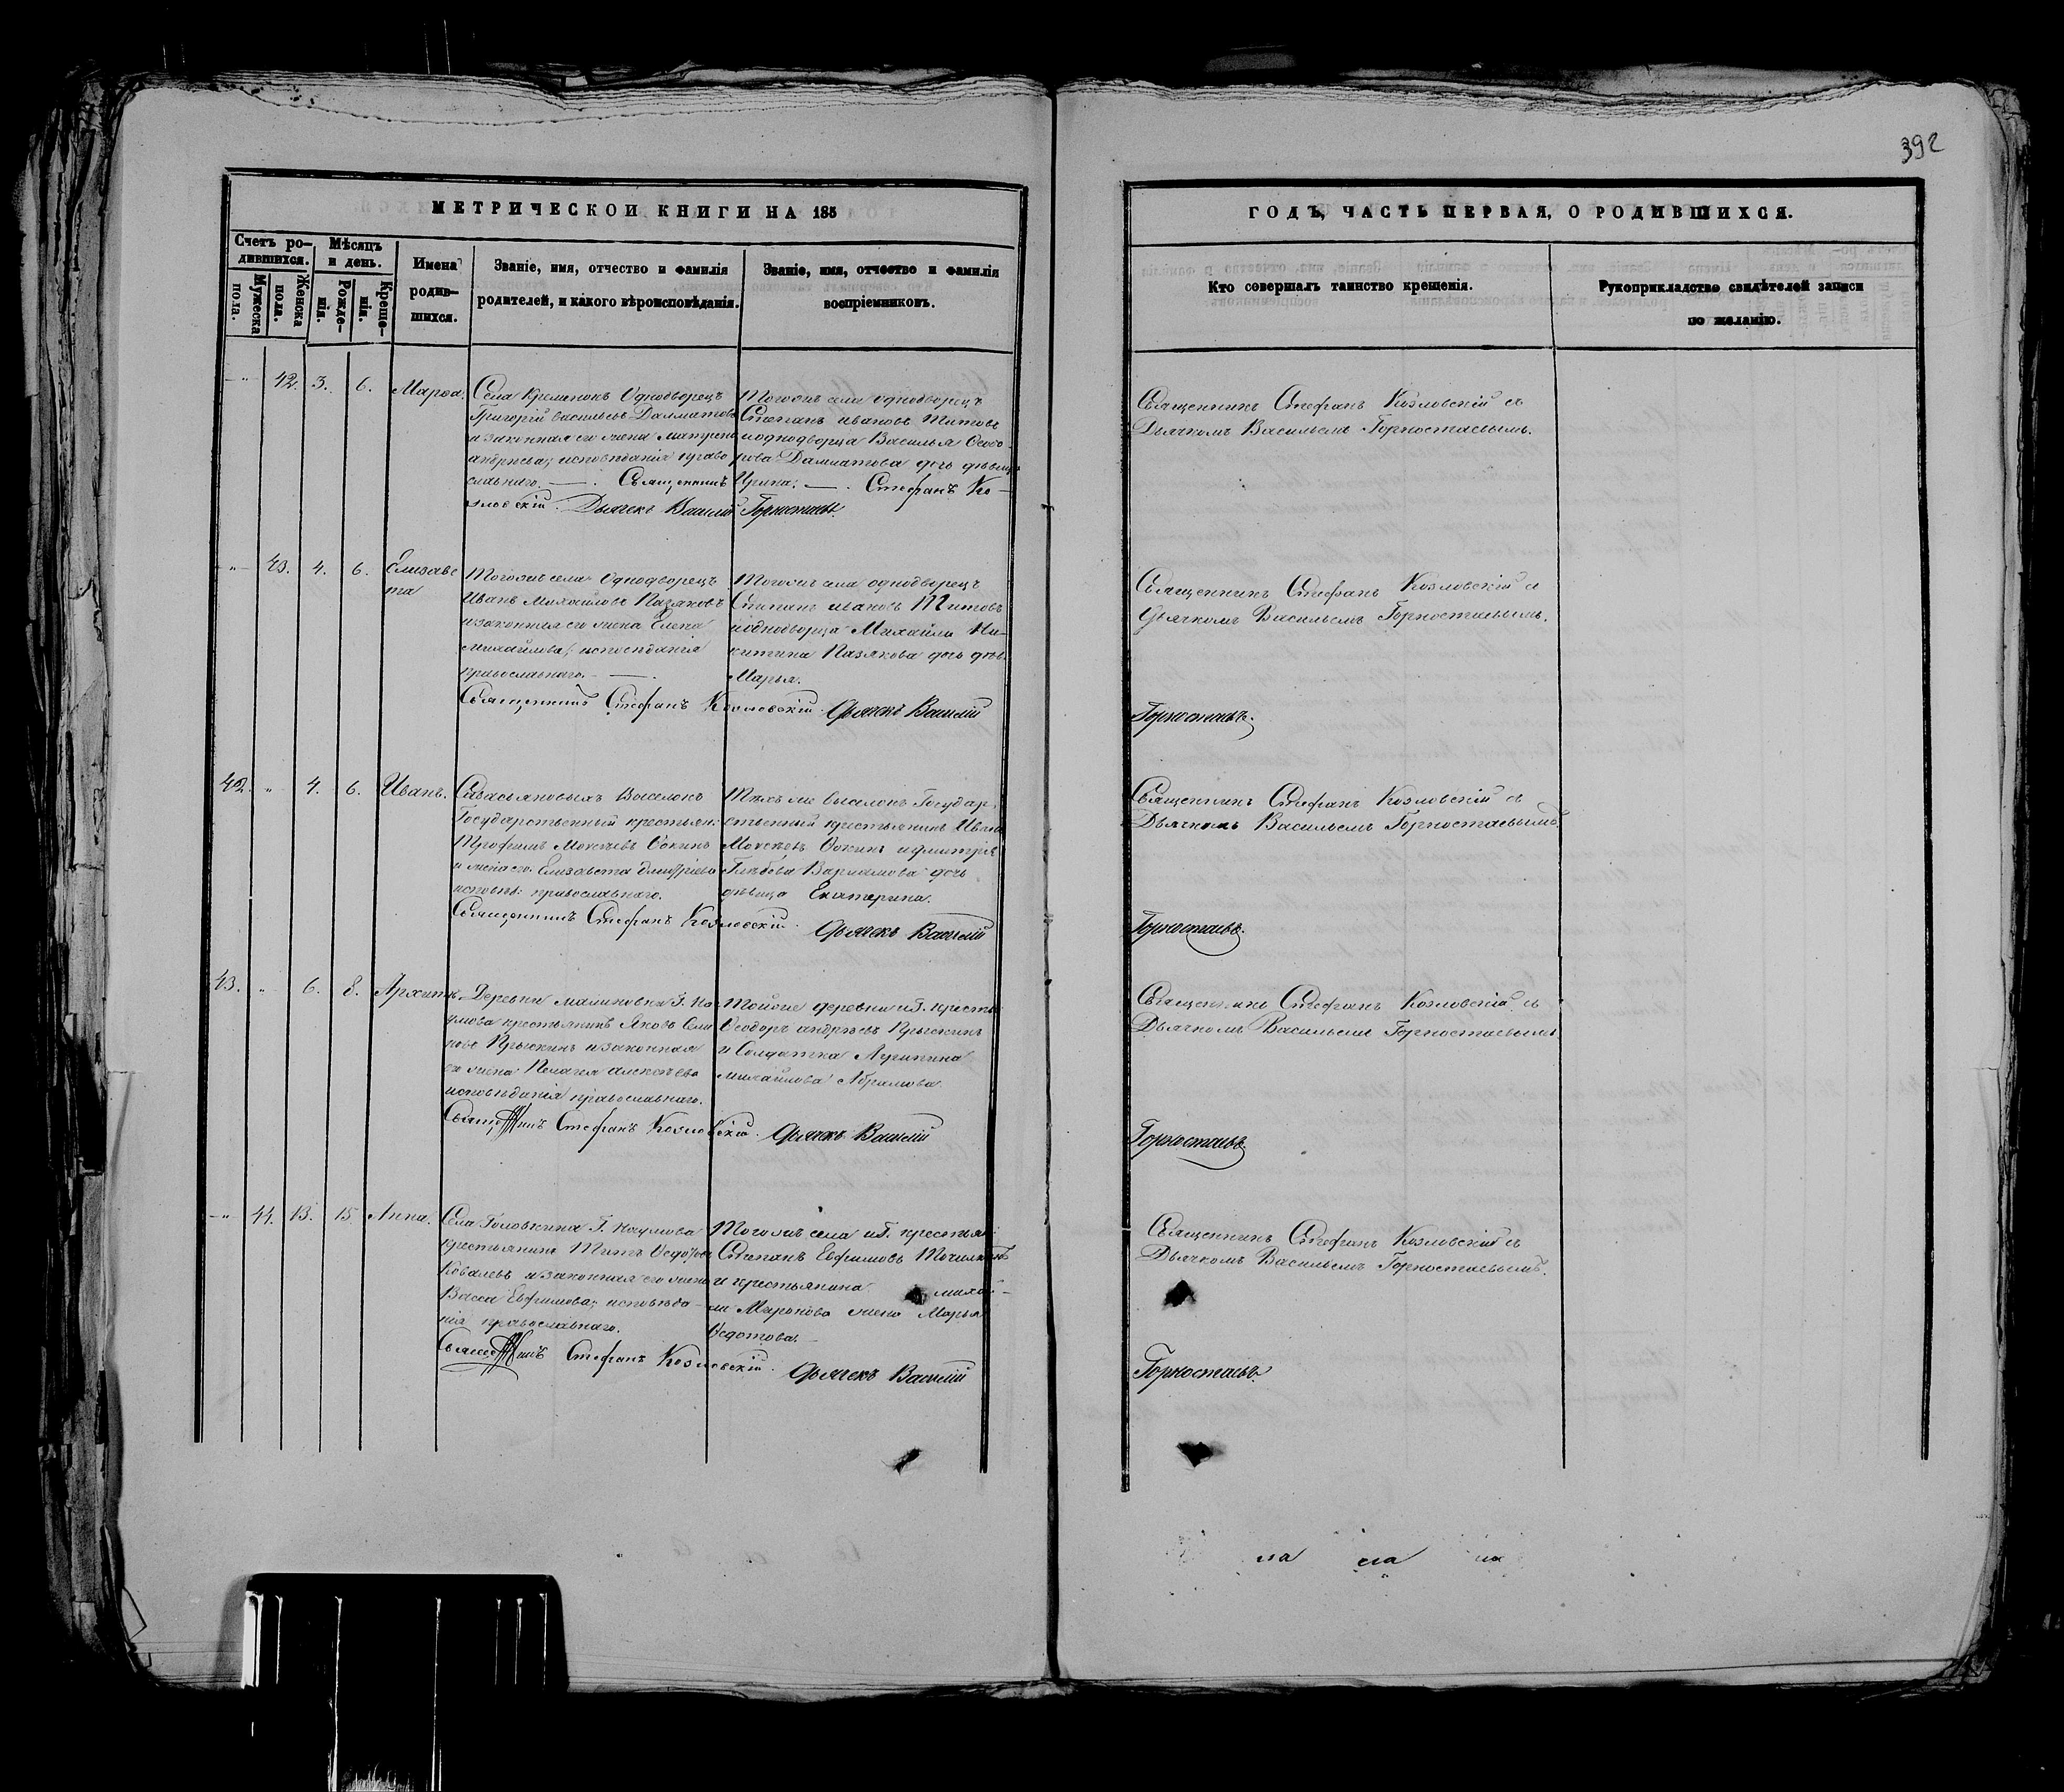 392
МЕТРИЧЕСКОЙ КНИГИ НА 185
Счетъ ро-
дившихся.
Мужеска
пола.
Женска
пола.
Мѣсяцъ
и день.
Рожде-
нія.
Креще-
нія.
Имена
родив-
шихся.
Званіе, имя, отчество и фамилія
родителей, и какого вѣроисповѣданія.
Званіе, имя, отчество и фамилія
воспріемниковъ.
ГОДЪ, ЧАСТЬ ПЕРВАЯ, О РОДИВШИХСЯ.
Кто совершалъ таинство крещенія.
Рукоприкладство свидѣтелей записи
по желанію.
„ 42. 3. 6. Марѳа.
Села Кременокъ Однодворецъ
Григорій Васильевъ Далматовъ
и законная его жена Матрена
андреева; исповѣданія право
славнаго. Священникъ
Тогожъ села однодворецъ
Степанъ Ивановъ Титовъ
и однодворца Василья Ѳедо
рова Далматова дочь дѣвица
Ирина. Стефанъ Ко-
зловскій. Дьячекъ Василій Горностаевъ.
Священникъ Стефанъ Козловскій съ
Дьячкомъ Васильемъ Горностаевымъ.
„ 43. 4. 6. Елизаве
та
Тогожъ села Однодворецъ
Иванъ Михайловъ Казаковъ
и законная его жена Елена
Михайлова; исповѣданія
православнаго.
Тогожъ села однодворецъ
Степанъ ивановъ Титовъ
и однодворца Михайла Ни-
китина Казакова дочь дѣв.
Марья.
Священникъ Стефанъ Козловскій. Дьячекъ Василій
Священникъ Стефанъ Козловскій съ
Дьячкомъ Васильемъ Горностаевымъ.
Горностаевъ.
42. „ 4. 6. Иванъ.
Савасьяновыхъ Выселокъ
Государственный крестьян:
Трофимъ Моисѣевъ
и жена его Елизавета Дмитріева
исповѣ: православнаго.
Тѣхъ же выселокъ Государ-
ственный крестьянинъ Иванъ
Моисѣевъ и Дмитрія
Глѣбова Варламова дочь
дѣвица Екатерина.
Священникъ Стефанъ Козловскій. Дьячекъ Василій
Священникъ Стефанъ Козловскій съ
Дьячкомъ Васильемъ Горностаевымъ.
Горностаевъ.
43. „ 6. 8. Архипъ.
Деревни Малиновки Г. На
умова крестьянинъ Яковъ Семе
новъ и законная
его жена Пелагея Алексѣева
исповѣданія православнаго.
Тойже деревни и Г. кресть:
Ѳеодоръ андреевъ
и Солдатка
михайлова Абрамова.
Священникъ Стефанъ Козловскій. Дьячекъ Василій
Священникъ Стефанъ Козловскій съ
Дьячкомъ Васильемъ Горностаевымъ.
Горностаевъ.
„ 44. 13. 15. Анна.
Села Головкина Г. Наумова
крестьянинъ Титъ Ѳедоровъ
Ковалевъ и законная его жена
Васса Евфимова; исповѣда-
нія православнаго.
Тогожъ села и Г. крестьян:
Степанъ Евфимовъ
и крестьянина миха-
ила Миронова жена Марья
Ѳедотова.
Священникъ Стефанъ Козловскій. Дьячекъ Василій
Священникъ Стефанъ Козловскій съ
Дьячкомъ Васильемъ Горностаевымъ.
Горностаевъ.